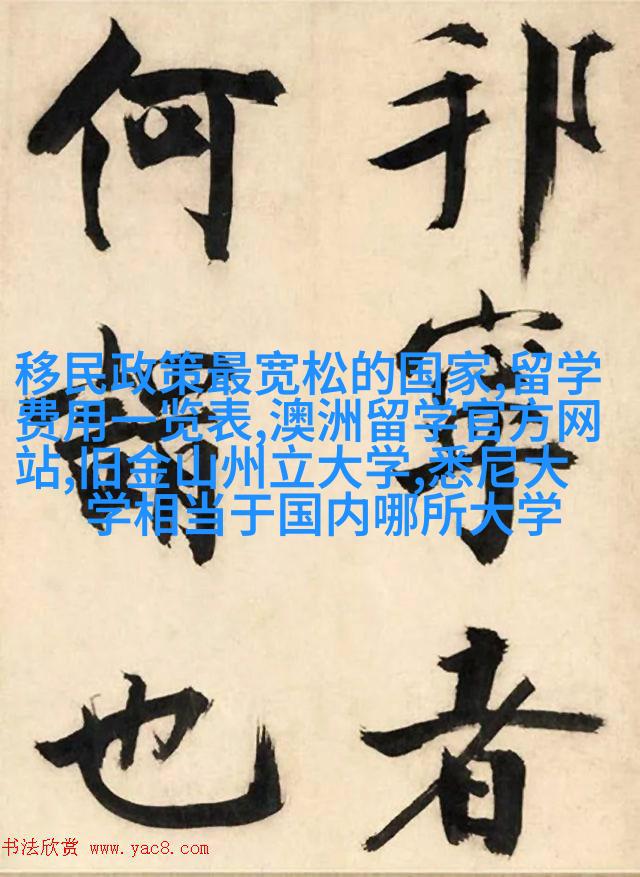 邦寧者
何也
移民政策最宽松的国家,留学
费用一览表,澳洲留学官方网
站,旧金山州立大学,悉尼大
学相当于国内哪所大学
书法欣赏 www.yac8.com